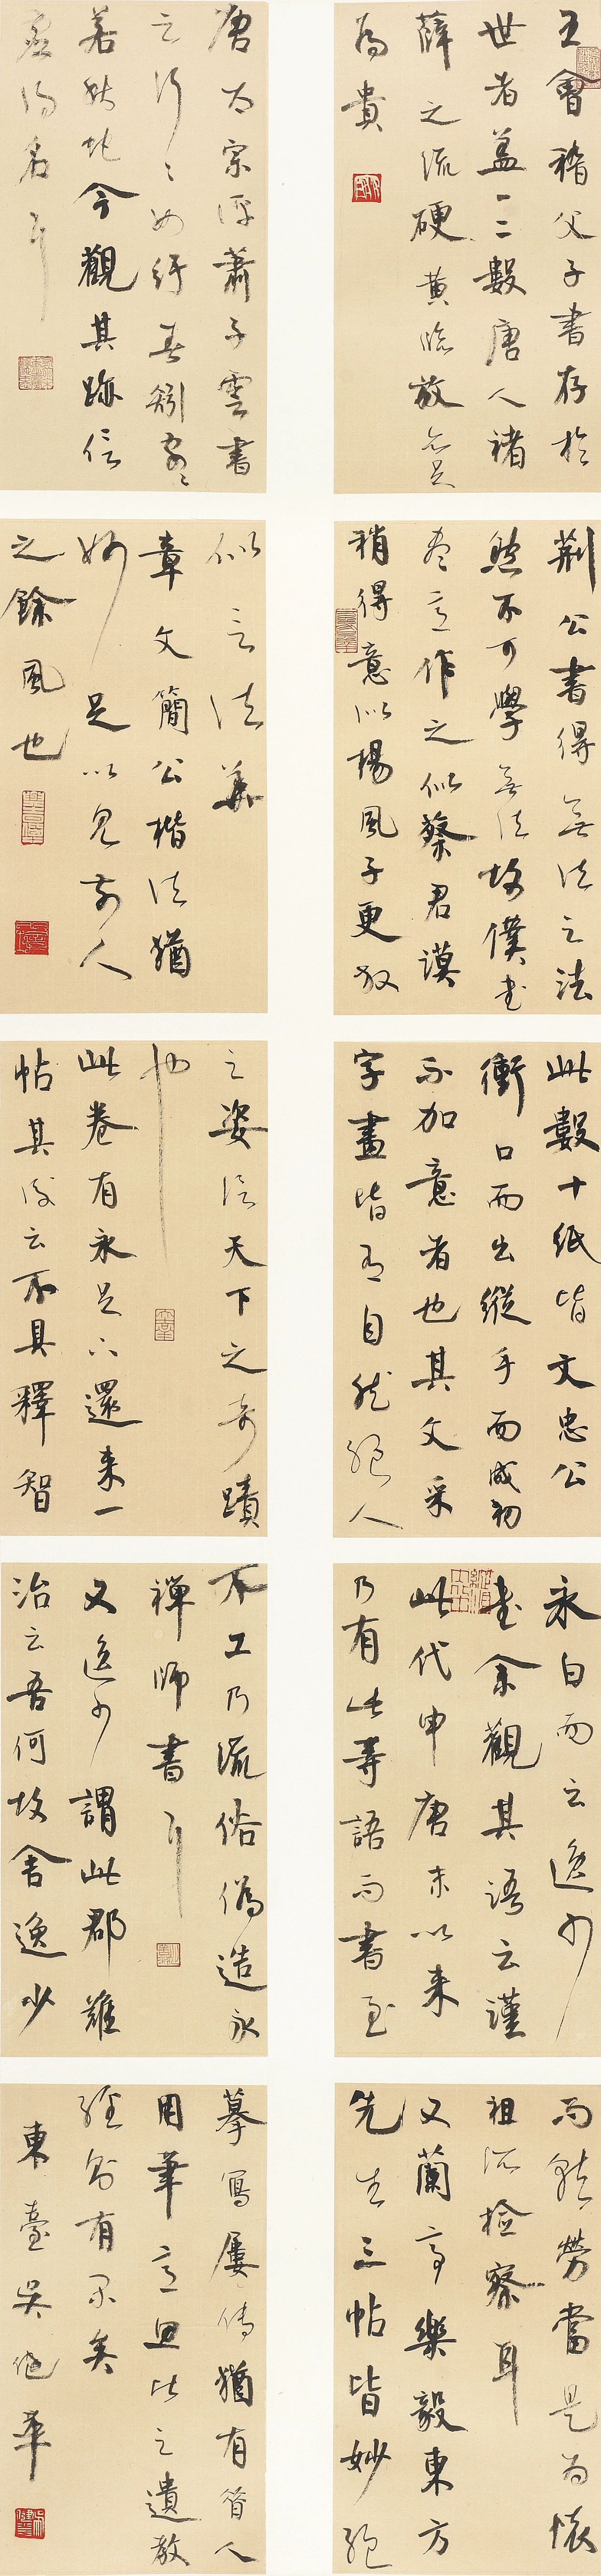 王會稽父子書存於
世者蓋一二數唐人褚
薛之流硬黃臨放亦足
為貴
唐太宗評蕭子雲書
云行〻如紆春蚓字〻
若秋蛇今觀其跡信
虛得名耳
荊公書得無法之法
然不可學無法故僕書
盡意作之似蔡君謨
稍得意似楊風子更放
似言法華
章文簡公楷法猶
妙足以見前人
之餘風也
此數十紙皆文忠公
衝口而出縱手而成初
不加意者也其文采
字畫皆有自然絕人
之姿信天下之奇蹟
也
此卷有永足下還來一
帖其後云不具釋智
永白而云逸少
書余觀其語云謹
此代申唐末以來
乃有此等語而書至
不工乃流俗偽造永
禪師書耳
又逸少謂此郡難
治云吾何故舍逸少
而就勞當是為懷
祖所檢察耳
又蘭亭樂毅東方
先生三帖皆妙絕
摹寫屢傳猶有昔人
用筆意思比之遺教
經則有間矣
東臺吳健華